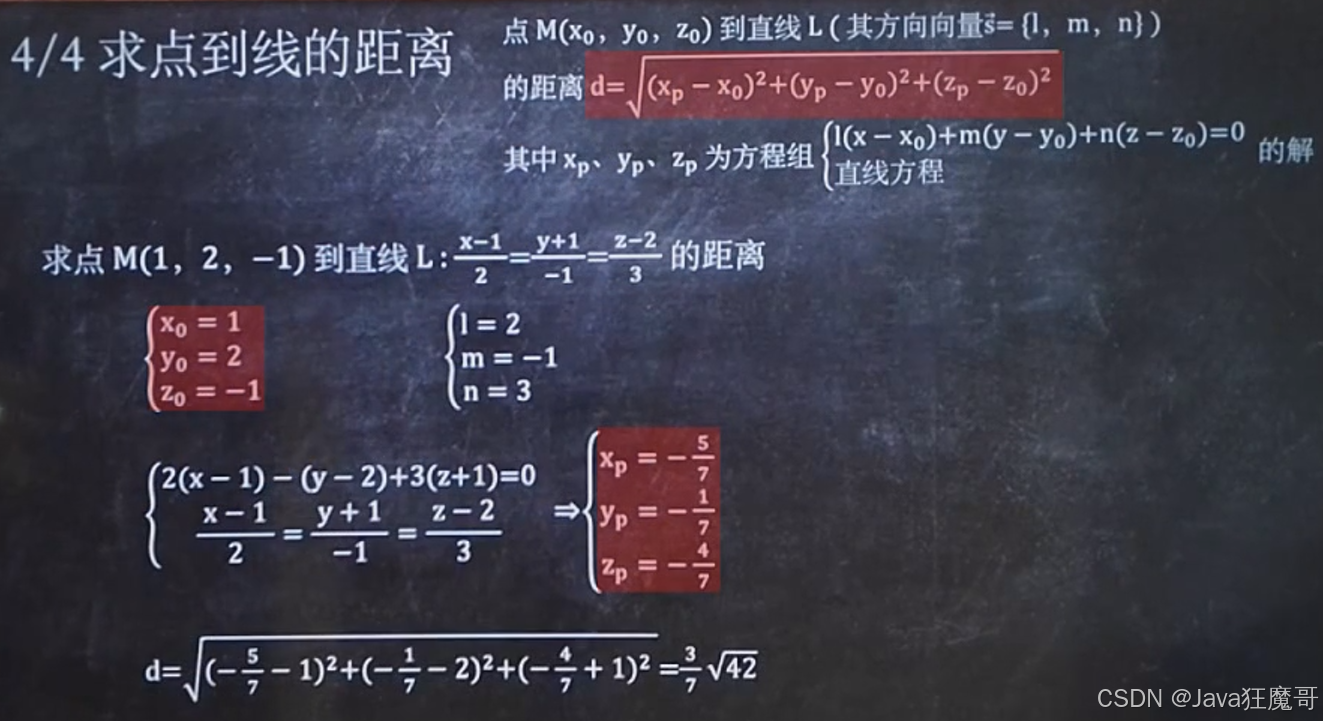 4/4 求点到线的距离
点 M(x₀, y₀, z₀) 到直线 L ( 其方向向量s⃗= {l, m, n} )
的距离 d=√(x_p − x₀)²+(y_p − y₀)²+(z_p − z₀)²
其中 x_p、y_p、z_p 为方程组 { l(x − x₀)+m(y − y₀)+n(z − z₀)=0 的解
直线方程
求点 M(1, 2, −1) 到直线 L : (x−1)/2=(y+1)/−1=(z−2)/3 的距离
x₀ = 1
y₀ = 2
z₀ = −1
l = 2
m = −1
n = 3
2(x − 1) − (y − 2)+3(z+1)=0
(x − 1)/2 = (y + 1)/−1 = (z − 2)/3
⇒
x_p = −5/7
y_p = −1/7
z_p = −4/7
d=√(−5/7 − 1)²+(−1/7 − 2)²+(−4/7 + 1)² =3/7 √42
CSDN @Java狂魔哥